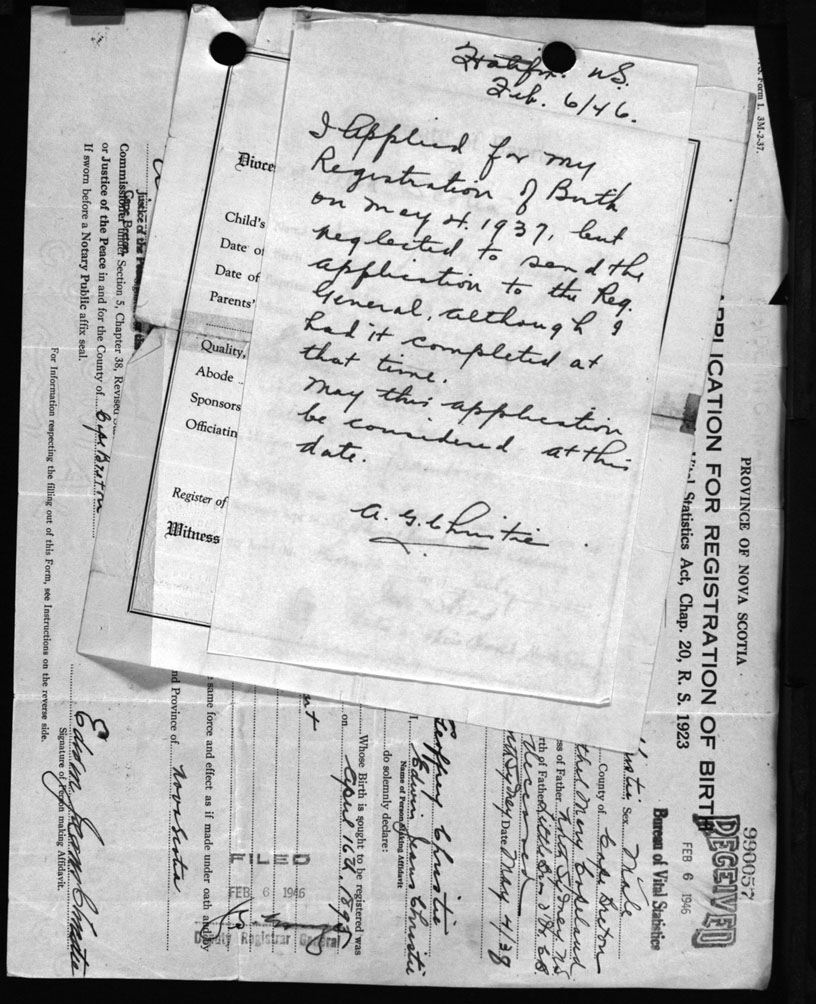 Halifax. N.S.
Feb. 6/46.
I applied for my
Registration of Birth
on May 4. 1937, but
neglected to send the
application to the Reg.
General, although I
had it completed at
that time.
May this application
be considered at this
date.
A. G. Christie
Dioce
Child's
Date of
Date of
Parents'
Quality,
Abode
Sponsors
Officiatin
Register of
Witness
Form 1. 3M-2-37.
PROVINCE OF NOVA SCOTIA
PPLICATION FOR REGISTRATION OF BIRTH
Vital Statistics Act, Chap. 20, R. S. 1923
990057
RECEIVED
FEB 6 1946
Bureau of Vital Statistics
Sex Male
County of Cape Breton
Mary Copeland
ss of Father
rth of Father
deceased
Sydney Date May 4/38
Geoffrey Christie
I, Edwin Christie
Name of Person making Affidavit
do solemnly declare:
Whose Birth is sought to be registered was
on April 16th, 1895
same force and effect as if made under oath and by
nd Province of Nova Scotia
FILED
FEB 6 1946
Deputy Registrar General
Justice of the Peace
Commissioner under Section 5, Chapter 38, Revised
Cape Breton
or Justice of the Peace in and for the County of Cape Breton
If sworn before a Notary Public affix seal.
Christie
Signature of Person making Affidavit.
For Information respecting the filling out of this Form, see Instructions on the reverse side.